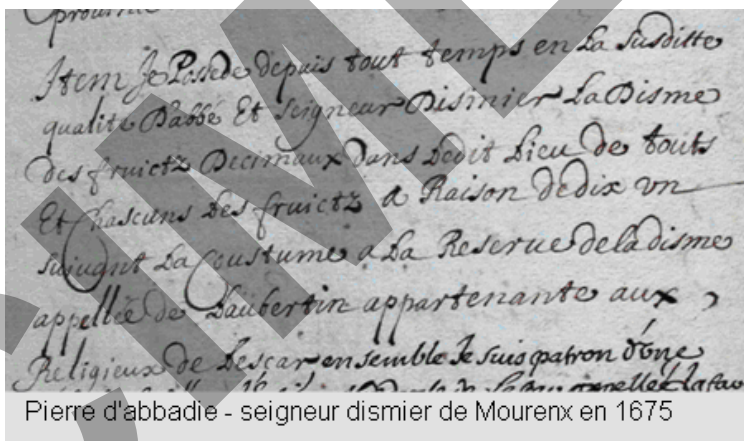 Item Je Possede depuis tout temps en La susditte
qualité D'abbé Et seigneur Disinier La Disme
des fruictz Decimaux Dans Ledit Lieu de touts
Et Chascuns des fruictz a Raison de dix vn
suivant La Coustume a La Reserve de la disme
appellée de Laubertin appartenante aux
Religieux de Lescar ensemble Je suis patron d'une
Pierre d'abbadie - seigneur dismier de Mourenx en 1675